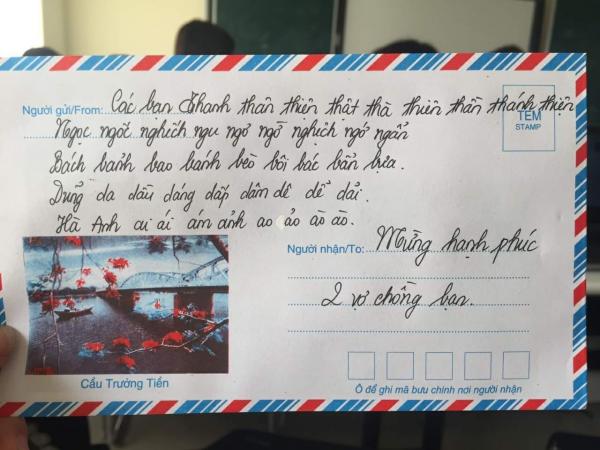 Người gửi/From: Các bạn Thanh thân thiện thật thà thiên thần thánh thiện
TEM
STAMP
Ngọc ngoi nghịch ngu ngơ ngố nghịch ngơ ngẩn
Bách banh bao banh bèo bôi bác bẩn bựa.
Dung da dâu dáng dấp dâm dê dể dải.
Hà Anh ai ái ám ảnh ao ảo ào ào.
Người nhận/To: Mừng hạnh phúc
2 vợ chồng bạn.
Cầu Trường Tiền
Ô để ghi mã bưu chính nơi người nhận